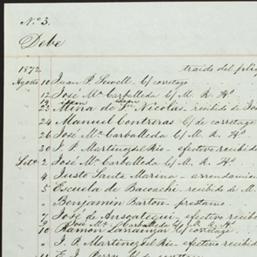 No. 3.
Debe
1872
traido del folio
Agosto 10 Juan P. Sewell c/ corretage
12 José Ma. Carballeda c/ M. R. Ho.
Mina de Sn. Nicolas, recibido de
24 Manuel Contreras c/ de corretage
26 José Ma. Carballeda c/ M. R. Ho.
30 J. P. Martinez del Rio - efectivo recibido
Setre. 2 José Ma. Carballeda c/ M. R. Ho.
4 Justo Santa Marina - arrendamien
5 Escuela de Bacoachi recibido de M.
Benjamin Barton prestamo
7 José de Ansoategui, efectivo recibido
José Ma. Carballeda c/ M. R. Ho.
10 Ramon c/ corretage
J. P. Martinez del Rio - efectivo recib